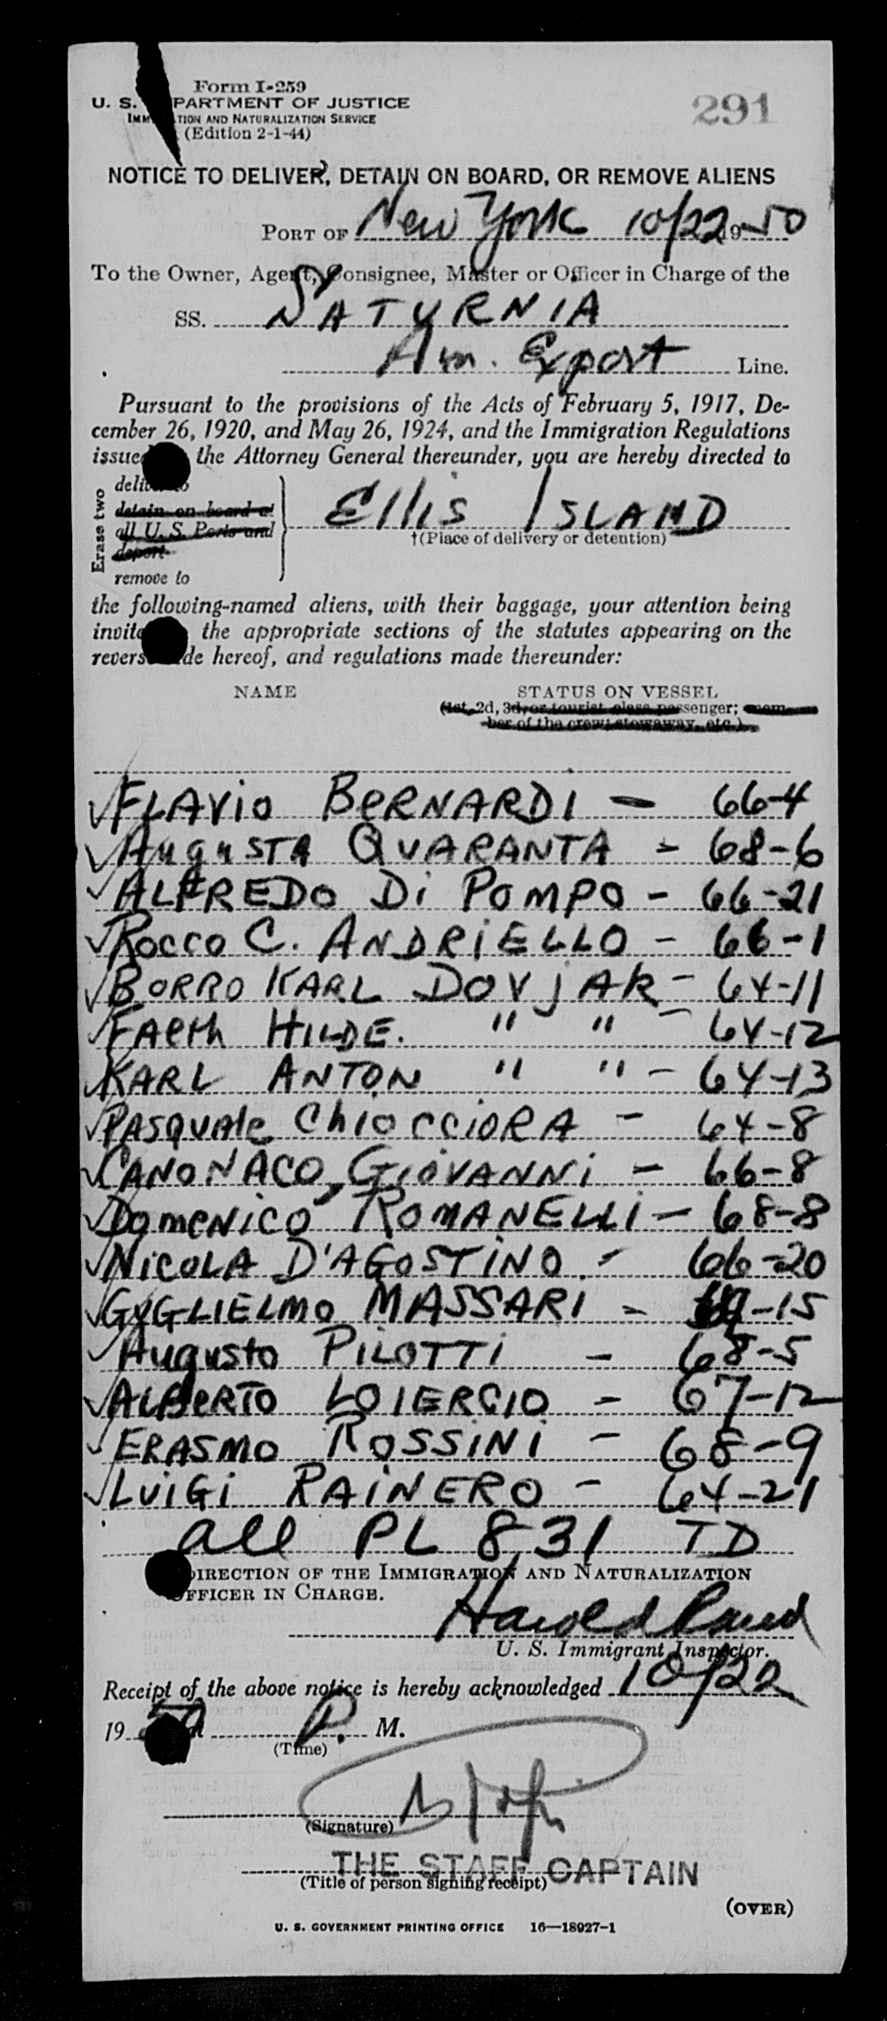 Form I-259
291
U. S. DEPARTMENT OF JUSTICE
IMMIGRATION AND NATURALIZATION SERVICE
(Edition 2-1-44)
NOTICE TO DELIVER, DETAIN ON BOARD, OR REMOVE ALIENS
PORT OF New York 10/22 1950
To the Owner, Agent, Consignee, Master or Officer in Charge of the
SS. SATURNIA
Am. Export Line.
Pursuant to the provisions of the Acts of February 5, 1917, De-
cember 26, 1920, and May 26, 1924, and the Immigration Regulations
issued the Attorney General thereunder, you are hereby directed to
Erase two
deliver to
detain on board at
all U. S. Ports and
deport
remove to
ELLIS ISLAND
†(Place of delivery or detention)
the following-named aliens, with their baggage, your attention being
invited the appropriate sections of the statutes appearing on the
reverse side hereof, and regulations made thereunder:
NAME STATUS ON VESSEL
(1st, 2d, 3d, or tourist class passenger; mem-
ber of the crew, stowaway, etc.)
✓ FLAVIO BERNARDI - 66-4
✓ AugusTA QUARANTA - 68-6
✓ ALFREDO Di POMPO - 66-21
✓ Rocco C. ANDRiELLO - 66-1
✓ BORRO KARL DOVJAK - 64-11
✓ FAeth HILDE. " " - 64-12
✓ KARL ANTON " " - 64-13
✓ PASQUAle ChIOCCIORA - 64-8
✓ CANONACO, GiOVANNi - 66-8
✓ DomeNICO ROMANELLi - 68-8
✓ NICOLA D'AGOSTINO - 66-20
✓ GUGLIELMO MASSARI - -15
✓ Augusto PILOTTI - 68-5
✓ ALBERTO LOIERCIO - 67-12
✓ ERASMO ROSSINI - 68-9
✓ LUIGI RAINERO - 64-21
all PL 831 TD
DIRECTION OF THE IMMIGRATION AND NATURALIZATION
OFFICER IN CHARGE.
Harold
U. S. Immigrant Inspector.
Receipt of the above notice is hereby acknowledged 10/22
19 50 P. M.
(Time)
(Signature)
THE STAFF CAPTAIN
(Title of person signing receipt)
(OVER)
U. S. GOVERNMENT PRINTING OFFICE 16—18927-1